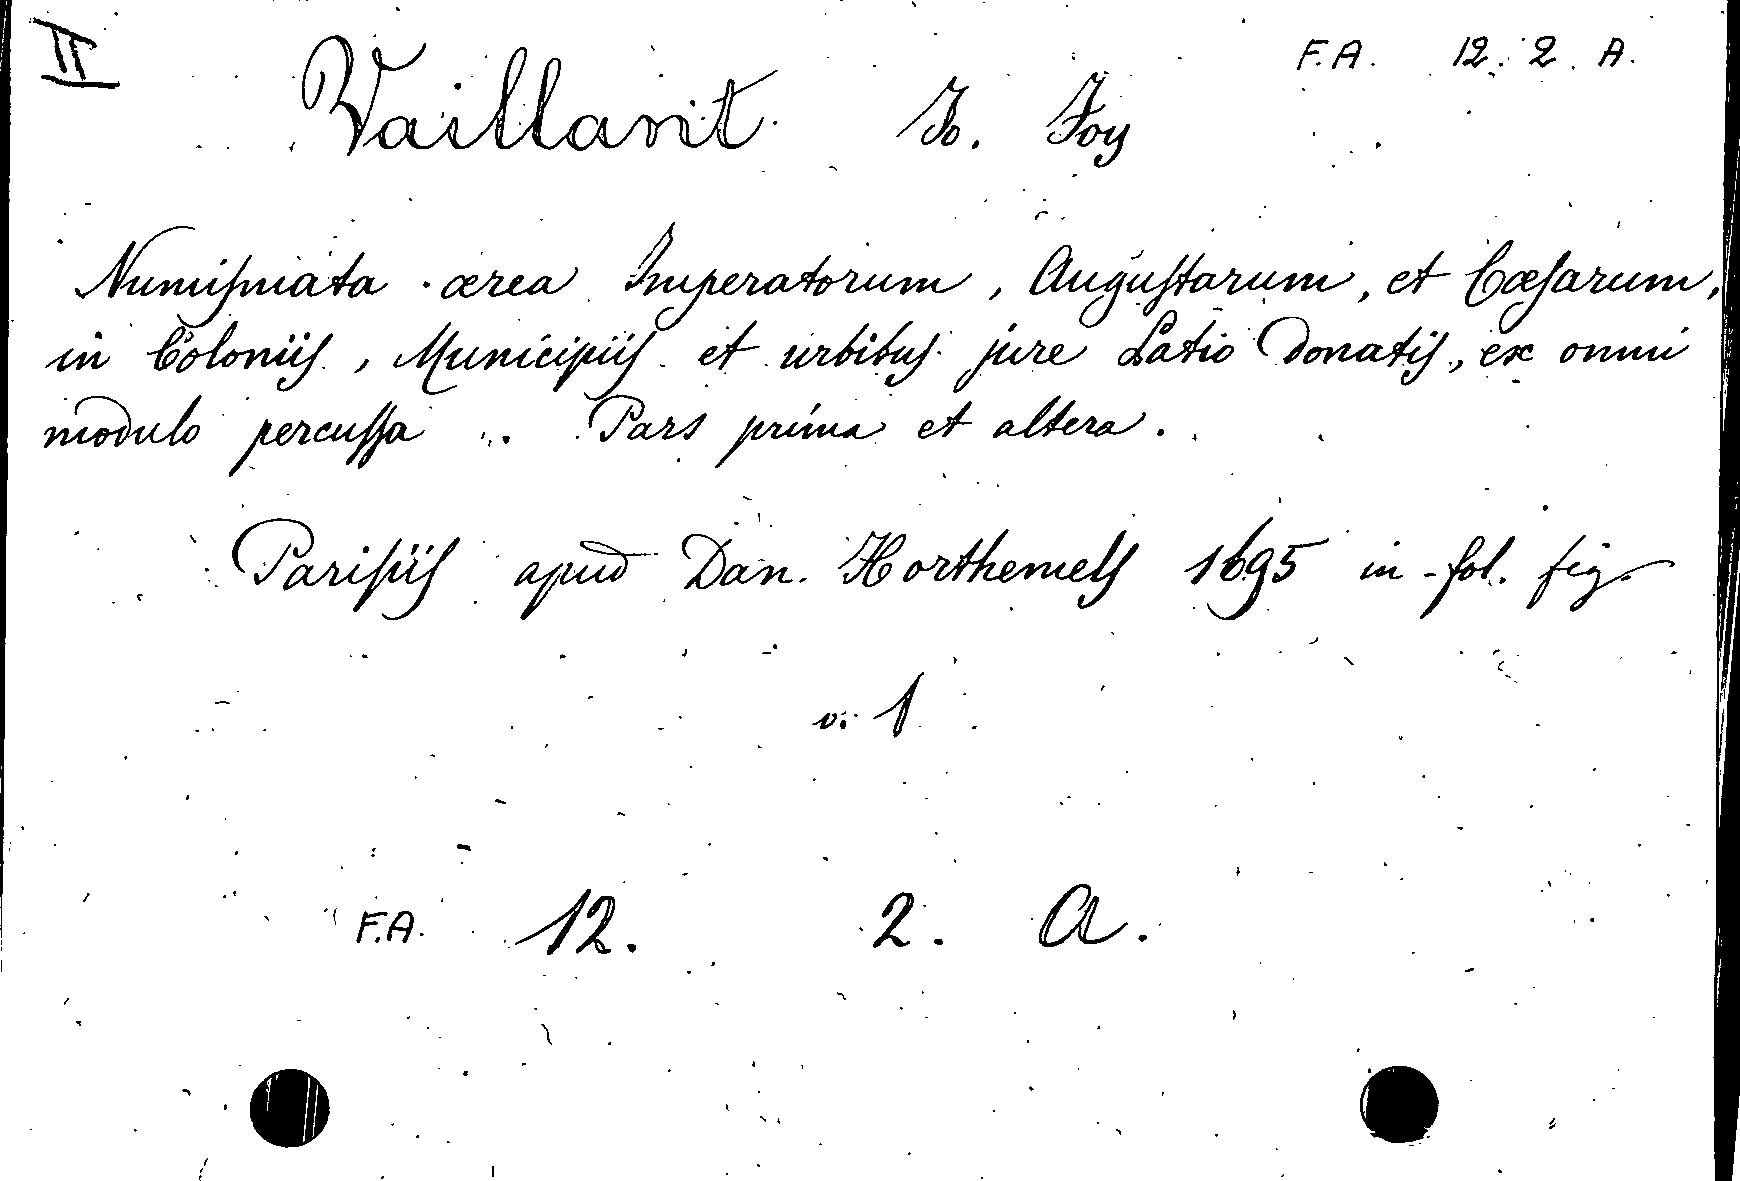 II
F.A. 12. 2. A.
Vaillant Jo. Foy
Numiſmata ærea Imperatorum, Auguſtarum, et Cæſarum,
in Coloniiſ, Municipiiſ et urbibuſ jure Latio donatiſ, ex omni
modulo percuſſa .. Pars prima et altera.
Pariſiiſ apud Dan. Horthemelſ 1695 in-fol. fig.
v. 1
F.A. 12. 2. A.